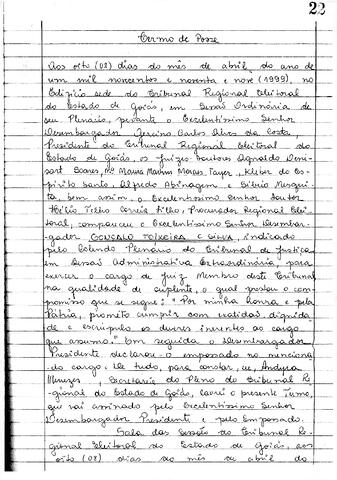 22
Termo de Posse
Aos oito (08) dias do mês de abril, do ano de
um mil novecentos e noventa e nove (1999), no
Edifício sede do Tribunal Regional Eleitoral
do Estado de Goiás, em Sessão Ordinária de
seu Plenário, perante o Excelentíssimo Senhor
Desembargador Jercino Carlos Alves da Costa,
Presidente do Tribunal Regional Eleitoral do
Estado de Goiás, os Juízes Doutores Agnaldo Deni-
sart Soares, Mª Maura Martins Moraes Tayer, Kleber do Es-
pírito Santo, Alfredo Abinagem e Sílvio Mesqui-
ta, bem assim, o Excelentíssimo Senhor Doutor
Hélio Telho Corrêa Filho, Procurador Regional Elei-
toral, compareceu o Excelentíssimo Senhor Desembar-
gador GONÇALO TEIXEIRA E SILVA, indicado
pelo Colendo Plenário do Tribunal de Justiça
em Sessão Administrativa Extraordinária, para
exercer o cargo de Juiz Membro deste Tribunal
na qualidade de suplente, o qual prestou o com-
promisso que se segue: "Por minha honra e pela
Pátria, prometo cumprir com exatidão, dignida-
de e escrúpulo os deveres inerentes ao cargo
que assumo." Em seguida, o Desembargador
Presidente declarou o empossado no
do cargo. De tudo, para constar, eu, Andyra
Menezes, Secretária do Pleno do Tribunal Re-
gional do Estado de Goiás, lavrei o presente Termo,
que vai assinado pelo Excelentíssimo Senhor
Desembargador Presidente e pelo Empossado.
Sala das Sessões do Tribunal Re-
gional Eleitoral do Estado de Goiás, aos
oito (08) dias do mês de abril do